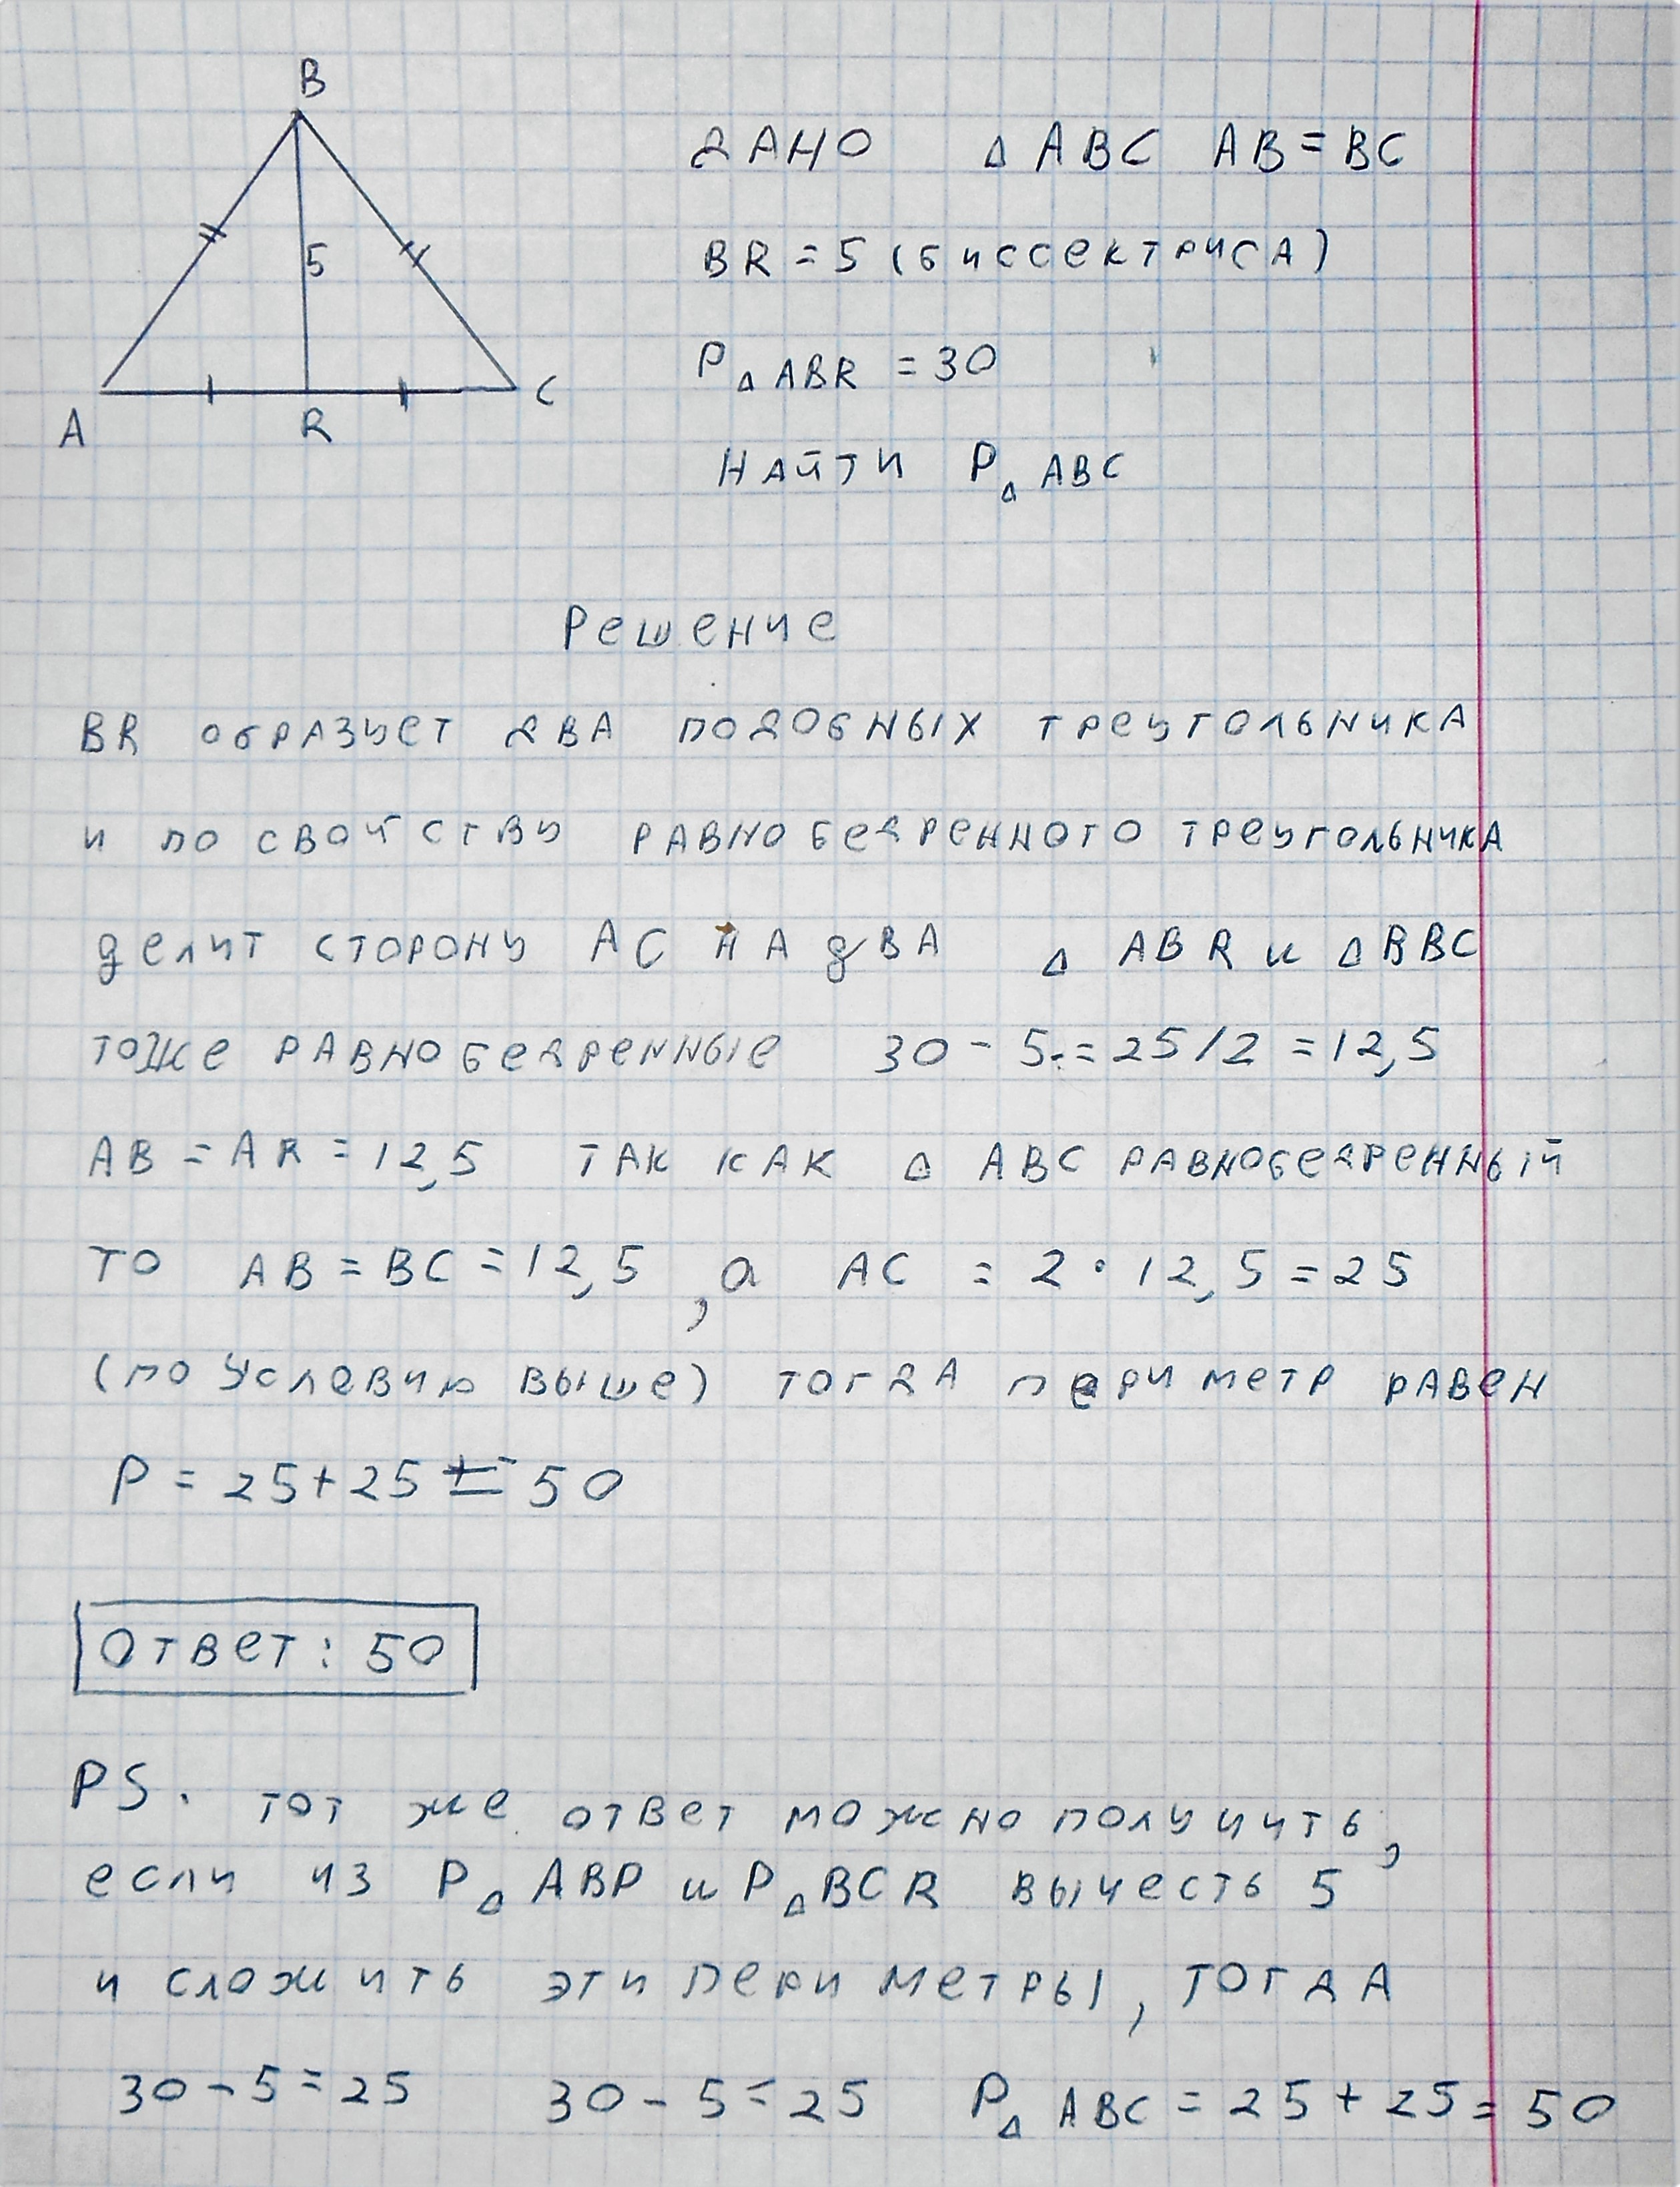 B
ДАНО △ ABC AB = BC
5
BR = 5 (биссектриса)
P△ ABR = 30
A R C
НАЙТИ P△ ABC
Решение
BR образует два подобных треугольника
и по свойству равнобедренного треугольника
делит сторону AC на два △ ABR и △ BBC
тоже равнобедренные 30 - 5 = 25 / 2 = 12,5
AB = AR = 12,5 так как △ ABC равнобедренный
то AB = BC = 12,5 , а AC = 2 · 12,5 = 25
(по условию выше) тогда периметр равен
P = 25 + 25 = 50
Ответ: 50
PS. тот же ответ можно получить,
если из P△ ABP и P△ BCR вычесть 5
и сложить эти периметры, тогда
30 - 5 = 25 30 - 5 = 25 P△ ABC = 25 + 25 = 50